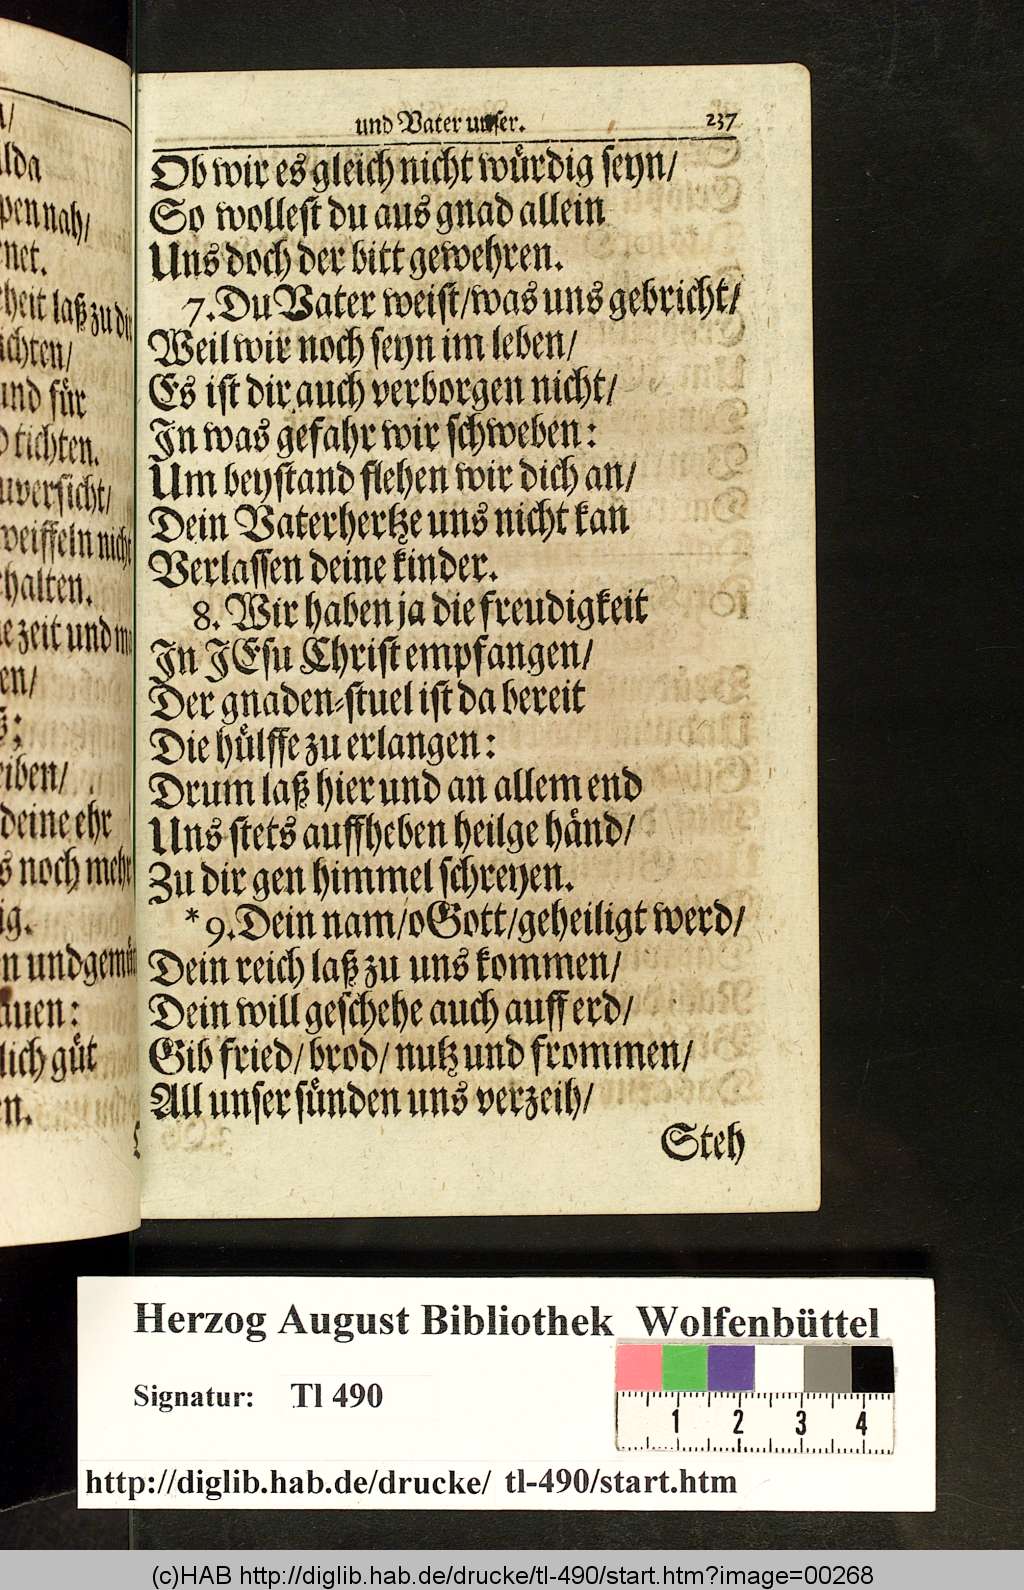 und Vater unser. 237
Ob wir es gleich nicht würdig seyn/
So wollest du aus gnad allein
Uns doch der bitt gewehren.
7. Du Vater weist/was uns gebricht/
Weil wir noch seyn im leben/
Es ist dir auch verborgen nicht/
In was gefahr wir schweben:
Um beystand flehen wir dich an/
Dein Vaterhertze uns nicht kan
Verlassen deine kinder.
8. Wir haben ja die freudigkeit
In JEsu Christ empfangen/
Der gnaden-stuel ist da bereit
Die hülffe zu erlangen:
Drum laß hier und an allem end
Uns stets auffheben heilge händ/
Zu dir gen himmel schreyen.
*9. Dein nam/o Gott/geheiligt werd/
Dein reich laß zu uns kommen/
Dein will geschehe auch auff erd/
Gib fried/ brod/ nutz und frommen/
All unser sünden uns verzeih/
Steh
nah/
laß zu
und für
tichten.
nicht
zeit und
deine ehr
noch mehr
und
güt
Herzog August Bibliothek Wolfenbüttel
Signatur: Tl 490
1 2 3 4
http://diglib.hab.de/drucke/ tl-490/start.htm
(c)HAB http://diglib.hab.de/drucke/tl-490/start.htm?image=00268